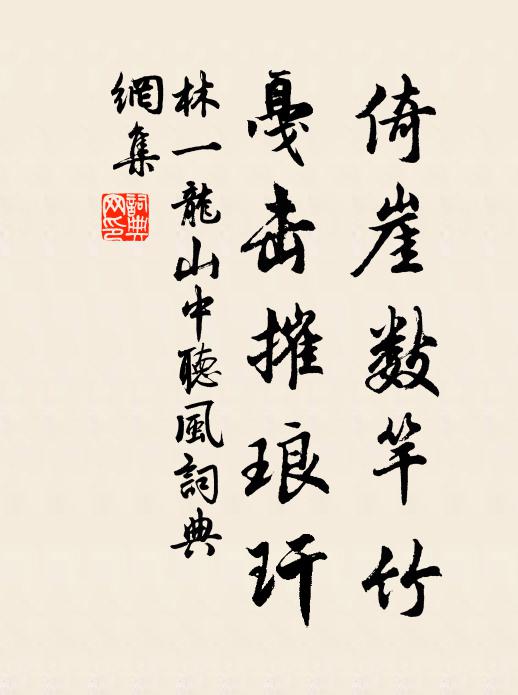 倚崖数竿竹
戛击摧琅玕
林一龍山中聴風詞典
網集
詞典网印